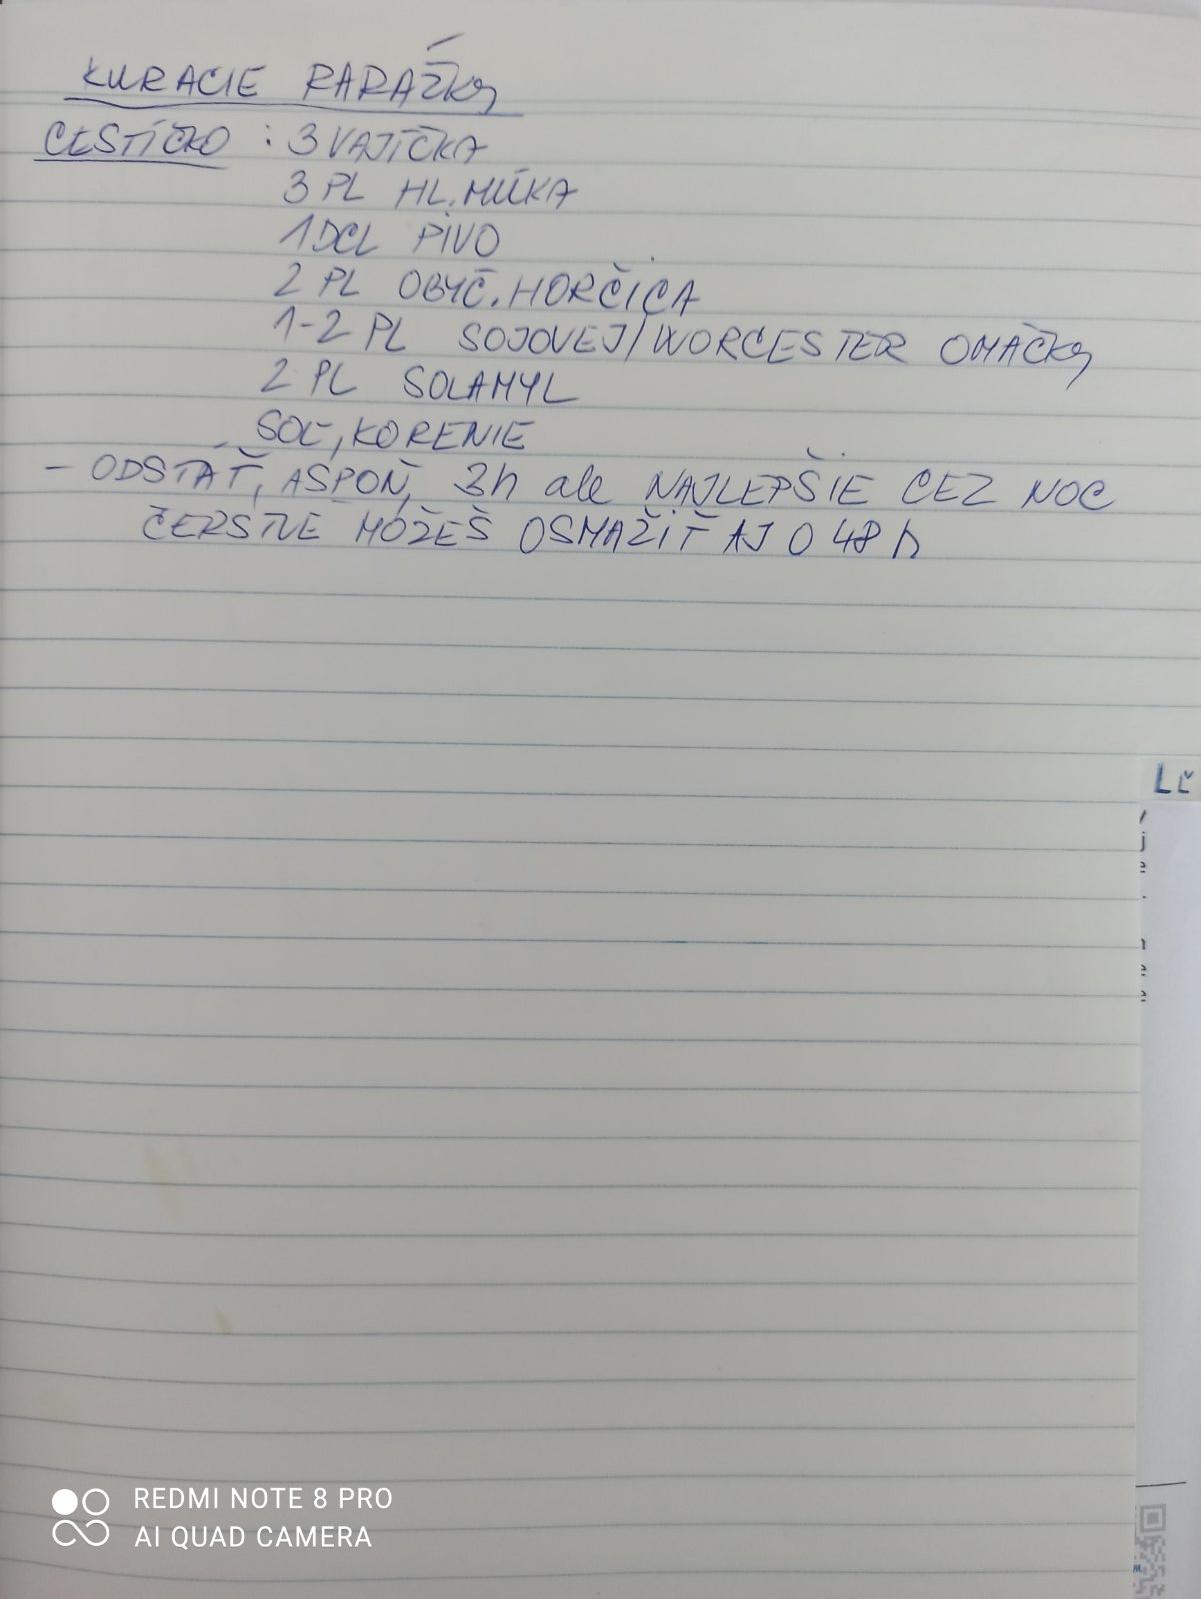 KURACIE RARÁŽKY
CESTÍČKO : 3 VAJÍČKA
3 PL HL. MÚKA
1 DCL PIVO
2 PL OBYČ. HORČICA
1-2 PL SOJOVEJ/WORCESTER OMÁČKY
2 PL SOLAMYL
SOĽ, KORENIE
- ODSTÁŤ, ASPOŇ, 3h ale NAJLEPŠIE CEZ NOC
ČERSTVÉ MÔŽEŠ OSMAŽIŤ AJ O 48 h
Lč
REDMI NOTE 8 PRO
AI QUAD CAMERA